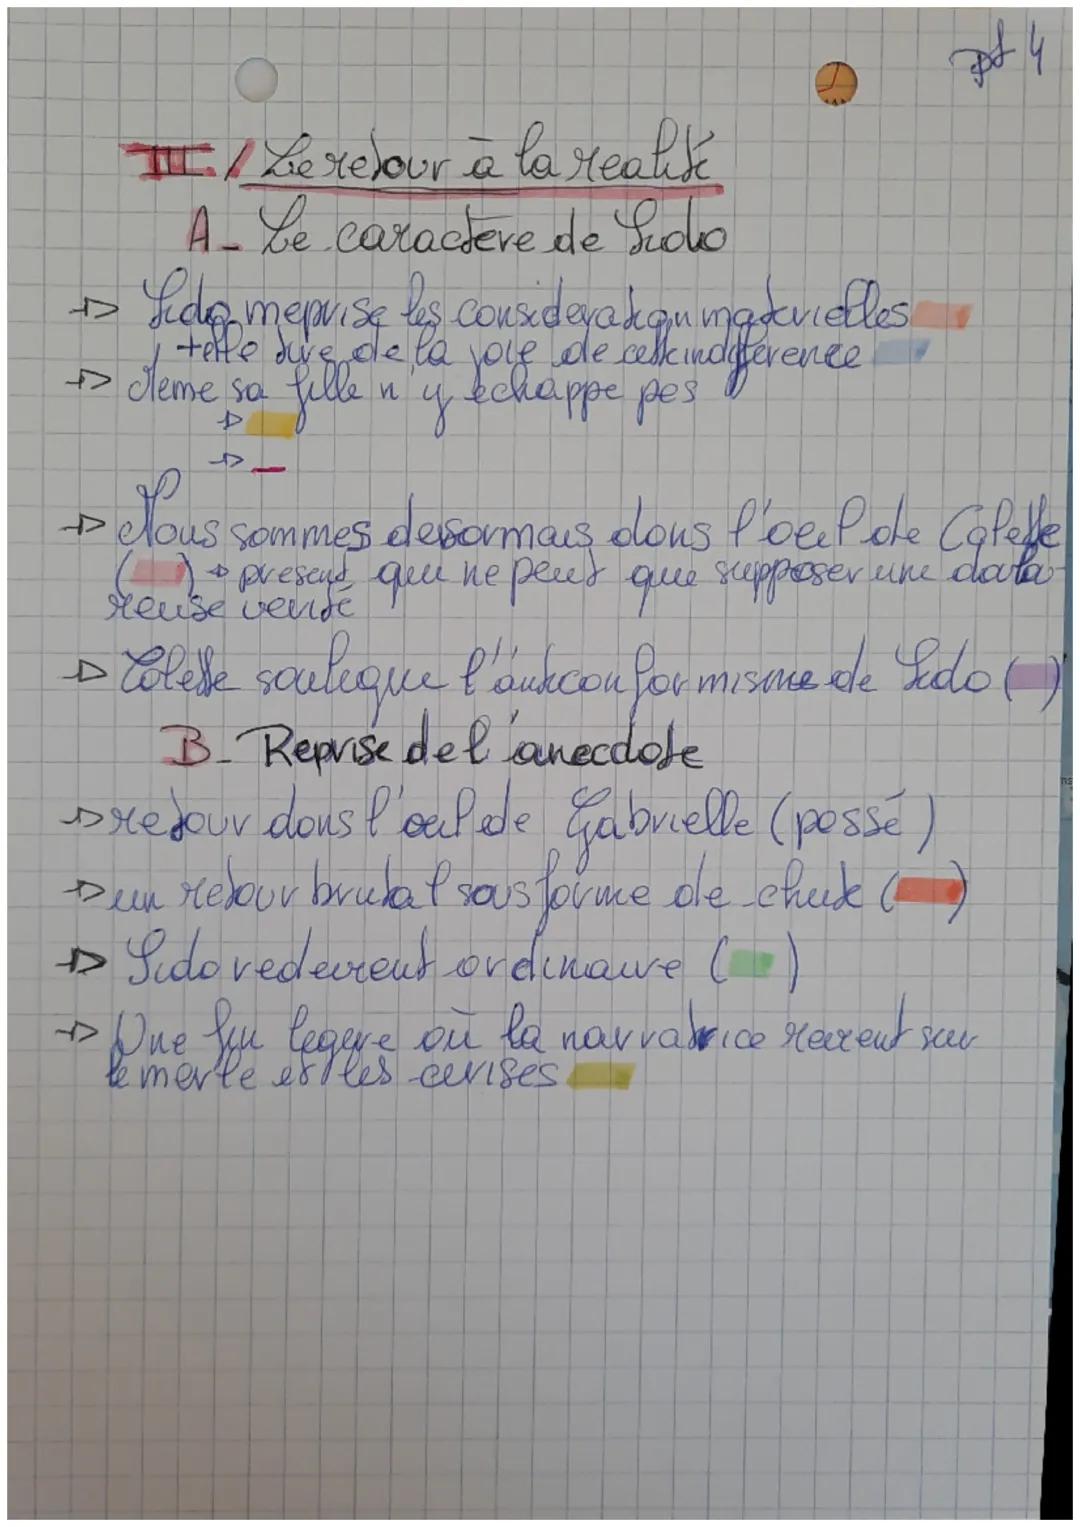 pt 4
III./ Le retour à la realité
A- Le caractere de Sido
→ Sido meprise les consideration materielles
+ elle tire de la joie de cette indifference
→ Meme sa fille n'y echappe pas
→
→
→ Nous sommes desormais dans l'oeil de Colette
( ) → present qui ne peut que supposer une doulou-
reuse verité
→ Colette souligne l'anticonformisme de Sido ( )
B- Reprise de l'anecdote
→ retour dans l'oeil de Gabrielle (passé)
→ un retour brutal sous forme de chute ( )
→ Sido redevient ordinaire ( )
→ Une fin legere où la narratrice revient sur
le merle et les cerises